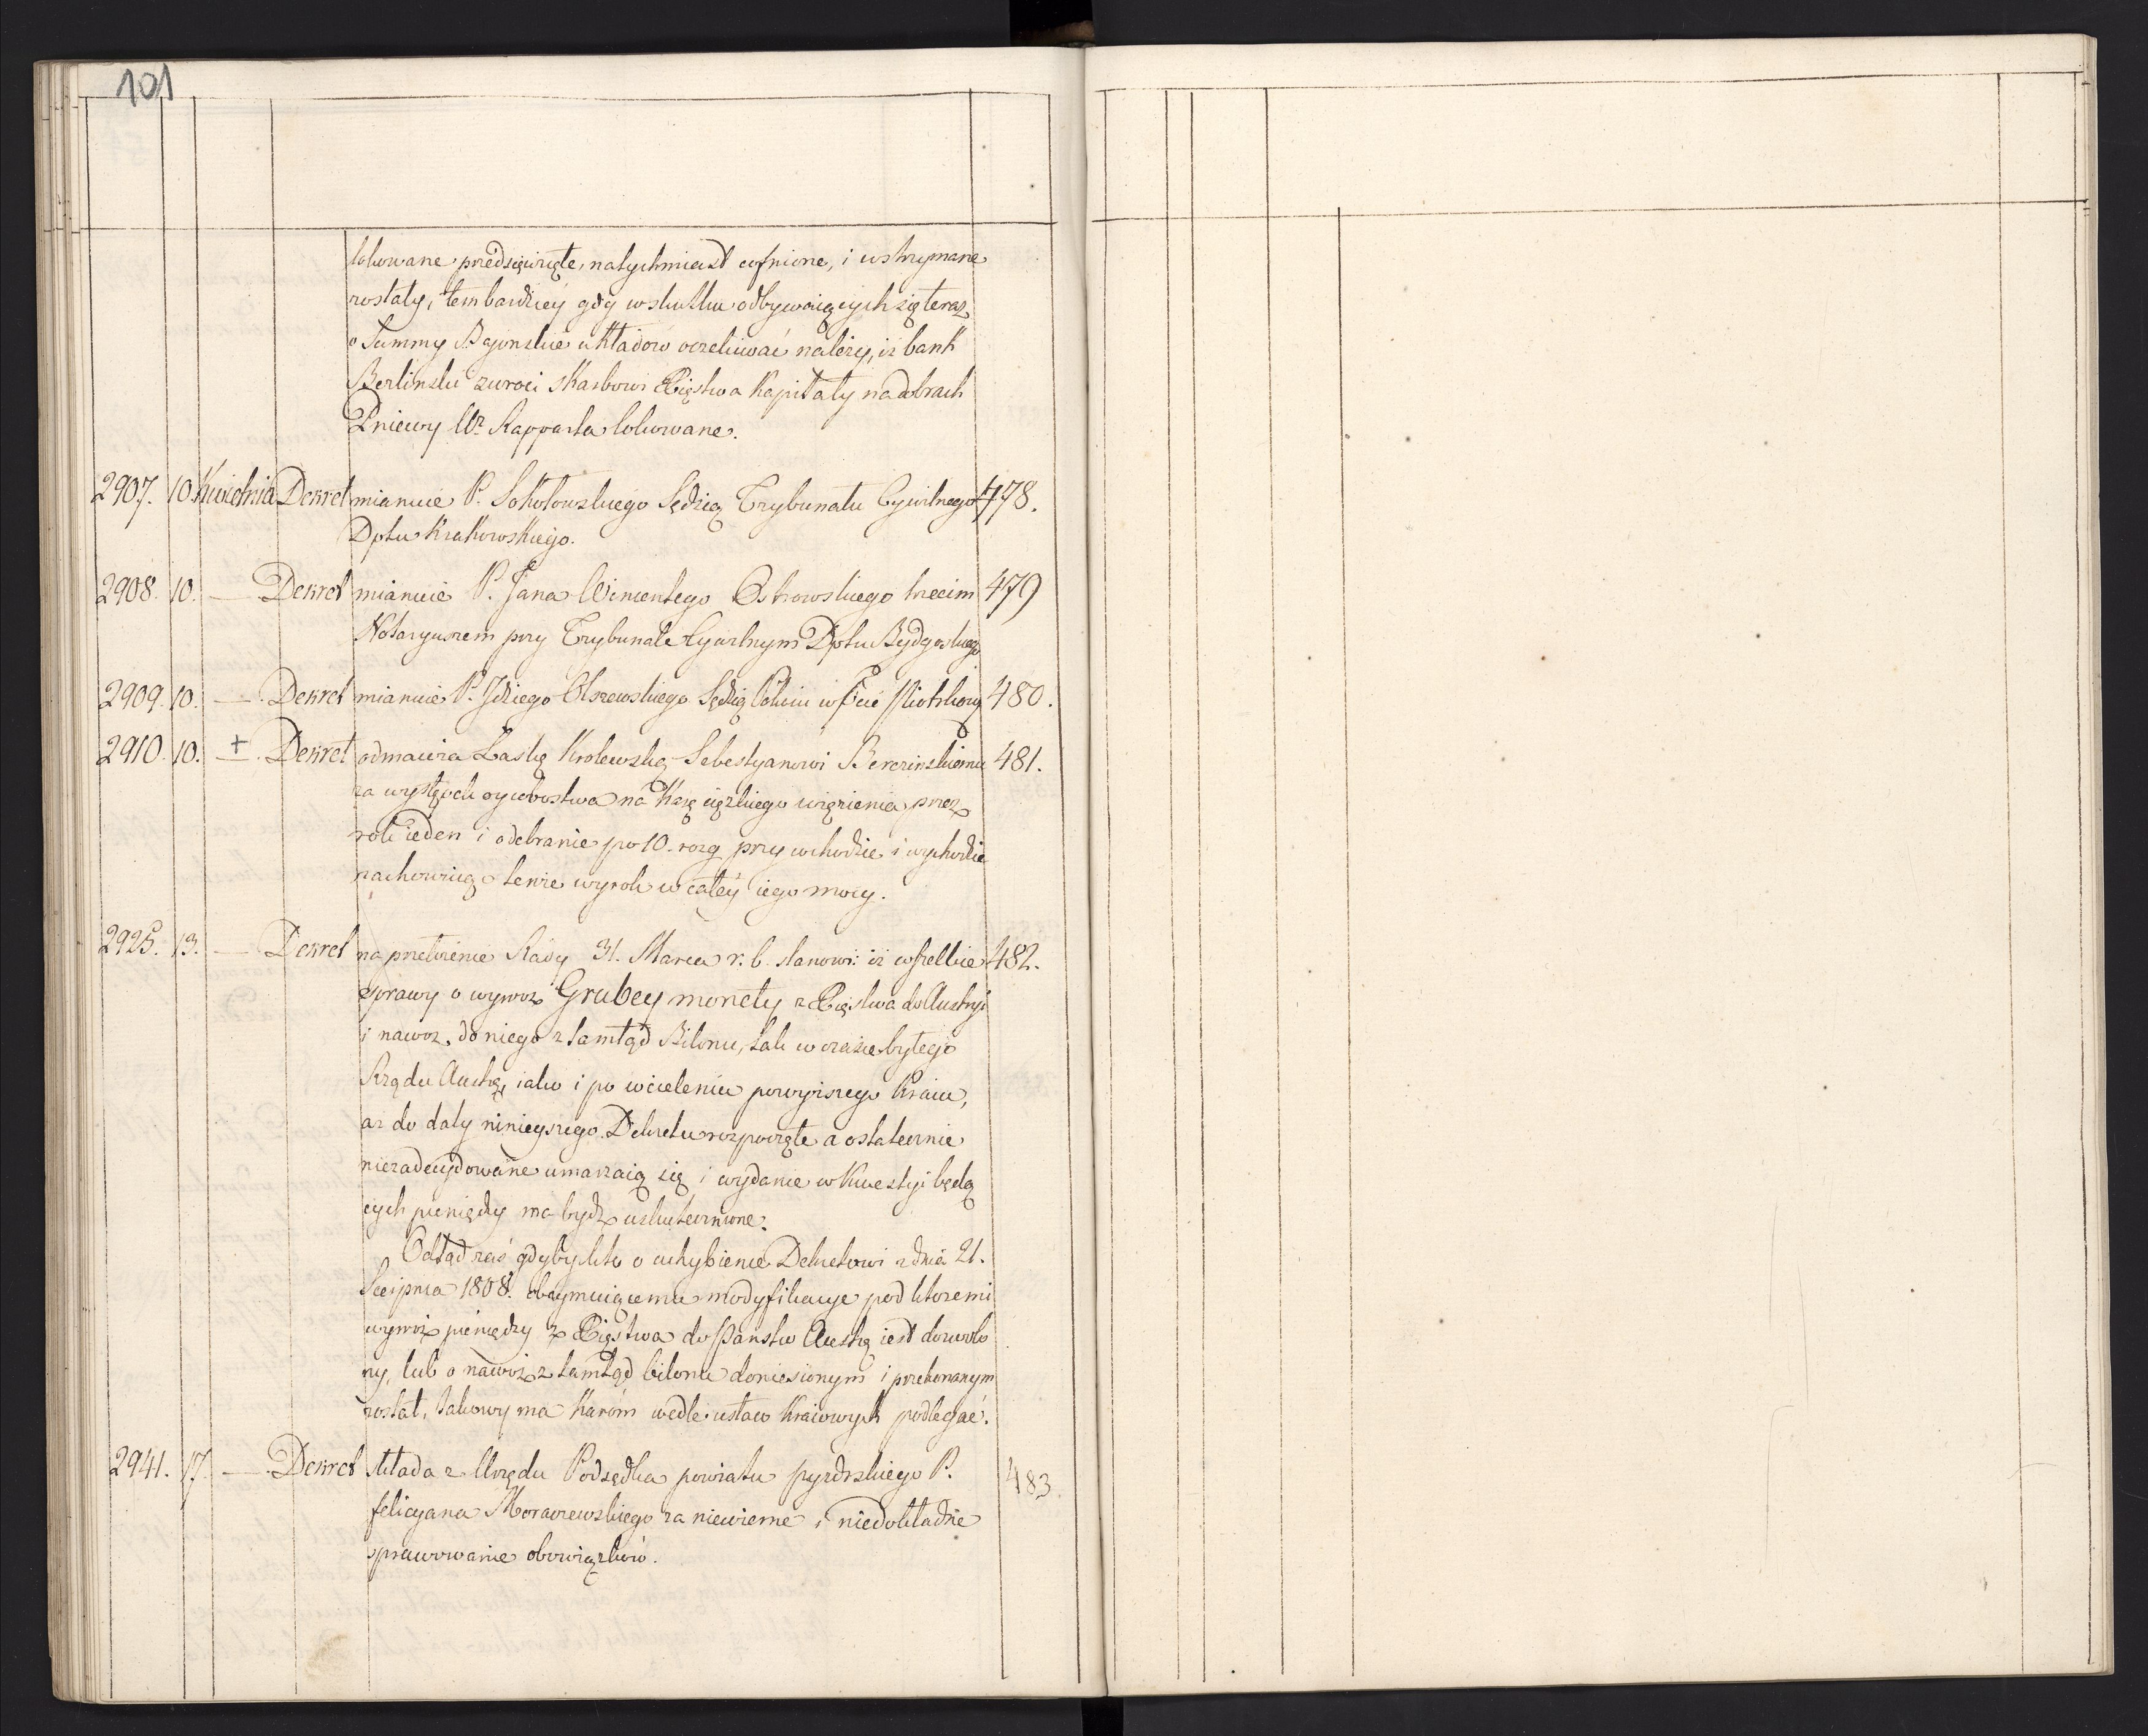 101
lokowane przedsięwzięte, natychmiast cofnione, i wstrzymane
zostały, tembardziey gdy wskutku odbywaiących się teraz
o Summy Bajonskie układow oczekiwać należy, iż bank
Berlinski zwroci skarbowi Xięstwa Kapitały na dobrach
Pniewy Ur Rapparta lokowane.
2907. 10. Kwietnia Dekret mianuie P. Sokołowskiego Sędzią Trybunału Cywilnego 478.
Dptu Krakowskiego.
2908. 10. — Dekret mianuie P. Jana Wincentego Ostrowskiego trzecim 479
Notaryuszem przy Trybunale Cywilnym Dptu Bydgoskiego
2909. 10. — Dekret mianuie P. Idziego Olszewskiego Sędzią Pokoiu w Pcie 480.
2910. 10. + — Dekret odmawia Łaskę Krolewską Sebestyanowi Berezinskiemu 481.
za występek oycobostwa na Karę ciężkiego więzienia przez
rok ieden i odebranie po 10. rozg przy wchodzie i wychodzie
zachowuiąc tenże wyrok w całey iego mocy.
2925. 13. — Dekret na przełożenie Rady 31. Marca r. b. stanowi: iż wszelkie 482.
sprawy o wywoz Grubey monety z Xięstwa do Austryi
i nawoz do niego z tamtąd Bilonu, tak w czasie byłego
Rządu Austrę, iako i po wcieleniu powyższego Kraiu,
aż do daty ninieyszego Dekretu rozpoczęte a ostatecznie
niezadecydowane umarzaią się i wydanie w Kwestyi będą
cych pieniędzy ma bydź uskutecznione.
Odtąd zaś gdyby kto o uchybienie Dekretowi z dnia 21.
Sierpnia 1808. obeymuiącemu modyfikacye pod ktoremi
wywoz pieniędzy z Xięstwa do Państw Austrę iest dozwolo
ny, lub o nawoz z tamtąd bilonu doniesionym i przekonanym
został, takowy ma Karóm wedle ustaw Kraiowych podlegać.
2941. 17. — Dekret składa z Urzędu Podsędka powiatu pyzdrskiego P. 483.
felicyana Moraczewskiego za niewierne i niedokładne
sprawowanie obowiązków.